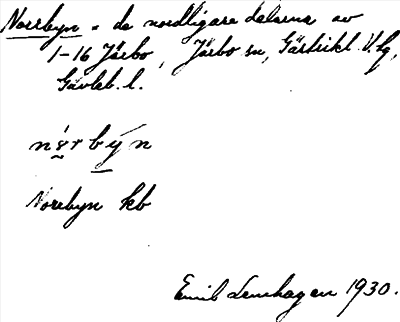 Norrbyn = de nordligare delarna av
1-16 Järbo, Järbo sn, Gästrikl. V. hg,
Gävleb. l.
Norrbyn kb
Emil Lenhagen 1930.